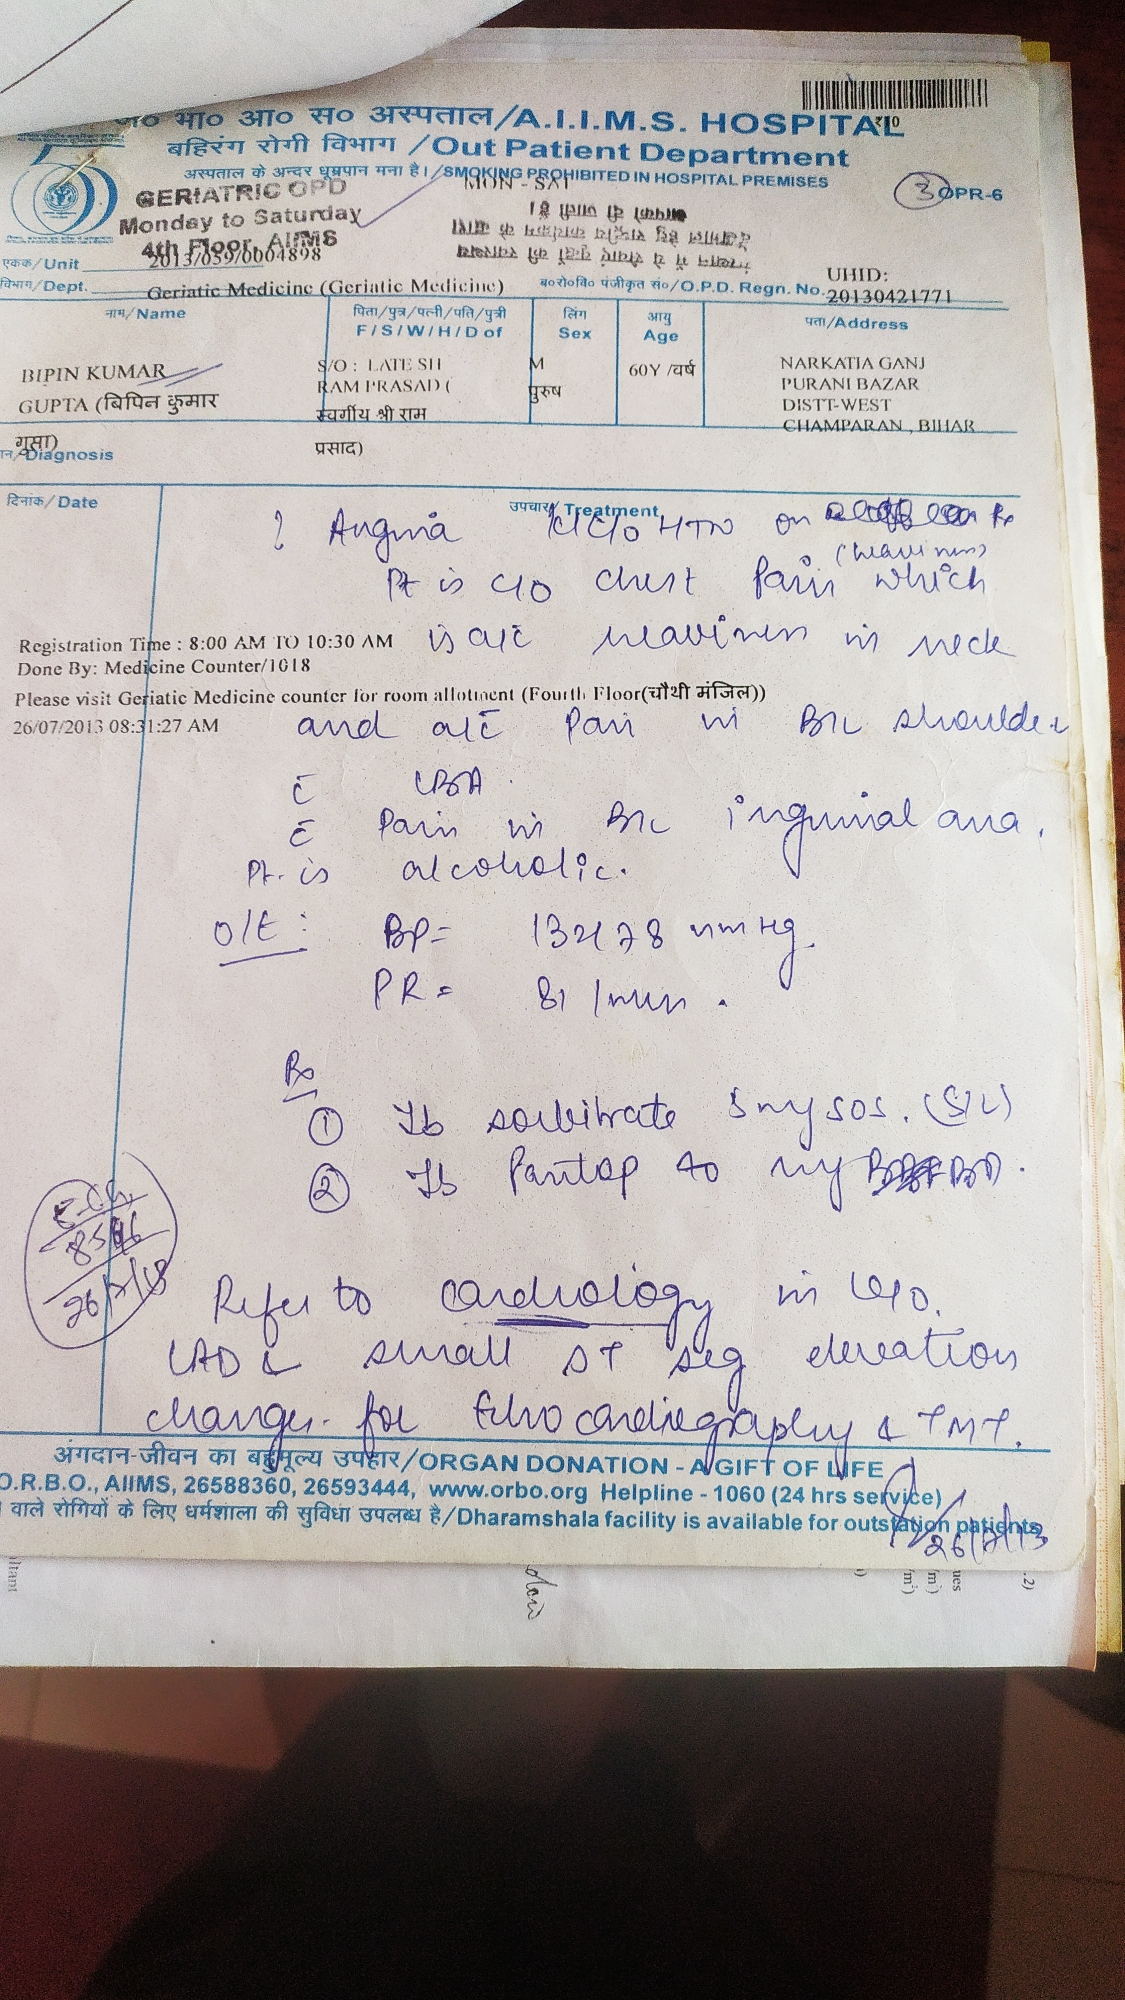 भा० आ० स० अस्पताल/A.I.I.M.S. HOSPITAL
₹10
बहिरंग रोगी विभाग /Out Patient Department
अस्पताल के अन्दर धूम्रपान मना है।/SMOKING PROHIBITED IN HOSPITAL PREMISES
MON - SAT
3 OPR-6
GERIATRIC OPD
Monday to Saturday
4th Floor, AIIMS
एकक/Unit 2013/059/0004898
UHID:
विभाग/Dept. Geriatic Medicine (Geriatic Medicine) ब०रो०वि० पंजीकृत सं०/O.P.D. Regn. No. 20130421771
नाम/Name पिता/पुत्र/पत्नी/पति/पुत्री लिंग आयु पता/Address
F/S/W/H/D of Sex Age
BIPIN KUMAR S/O : LATE SH M 60Y /वर्ष NARKATIA GANJ
GUPTA (बिपिन कुमार RAM PRASAD ( पुरुष PURANI BAZAR
स्वर्गीय श्री राम DISTT-WEST
CHAMPARAN , BIHAR
गुप्ता) प्रसाद)
Diagnosis
दिनांक/Date उपचार/Treatment
? Angina K/C/O HTN on Rx
(heaviness)
Pt is c/o chest Pain which
is a/c heaviness in neck
Registration Time : 8:00 AM TO 10:30 AM
Done By: Medicine Counter/1018
Please visit Geriatic Medicine counter for room allotment (Fourth Floor(चौथी मंजिल))
26/07/2013 08:31:27 AM
and a/c Pain in B/L shoulder
c̄ LBA.
c̄ Pain in B/L inguinal area.
Pt. is alcoholic.
O/E: BP= 132/78 mmHg.
PR= 81/min.
Rx
① Tb sorbitrate 5 mg SOS. (S/L)
② Tb Pantop 40 mg BD.
26/7/13
Refer to cardiology in
LAD c̄ small ST seg elevation
changes. for Echocardiography & TMT.
अंगदान-जीवन का बहुमूल्य उपहार/ORGAN DONATION - A GIFT OF LIFE
O.R.B.O., AIIMS, 26588360, 26593444, www.orbo.org Helpline - 1060 (24 hrs service)
वाले रोगियों के लिए धर्मशाला की सुविधा उपलब्ध है/Dharamshala facility is available for outstation patients
26/7/13